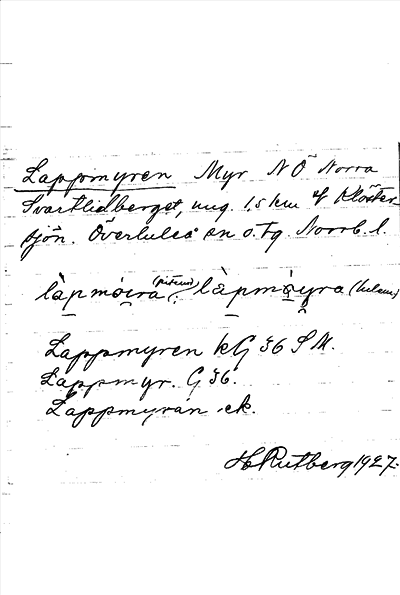 Lappmyren Myr NÖ Norra
Svartlidberget, ung. 1,5 km Klöster-
sjön. Överluleå sn o. tg. Norrb. l.
làpmɷira (piteus), làpmɷyra (luleus)
Lappmyren kG 36 S M.
Lappmyr. G 36.
Lappmyran ek.
H Rutberg 1927.